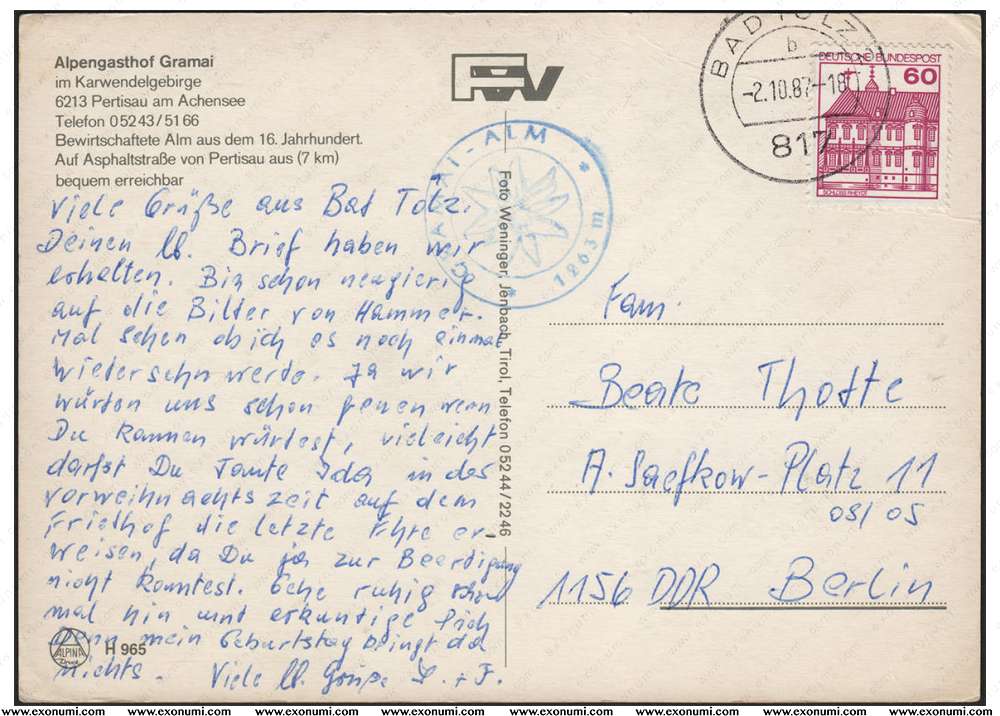 Alpengasthof Gramai
im Karwendelgebirge
6213 Pertisau am Achensee
Telefon 05243/5166
Bewirtschaftete Alm aus dem 16. Jahrhundert.
Auf Asphaltstraße von Pertisau aus (7 km)
bequem erreichbar
Viele Grüße aus Bad Tolz.
Deinen lb. Brief haben wir
erhalten. Bin schon neugierig
auf die Bilder von Hammer.
Mal sehen ob ich es noch einmal
wiedersehn werde. Ja wir
würden uns schon freuen wenn
Du kommen würdest, vieleicht
darfst Du Tante Ida in der
vorweihnachtszeit auf dem
Friedhof die letzte Ehre er-
weisen, da Du ja zur Beerdigung
nicht konntest. Gehe ruhig
mal hin und erkundige Dich
denn mein Geburtstag bringt da
nichts. Viele lb. Grüße
ALPINA
Druck
H 965
FW
GRAMAI-ALM * * 1263 m *
Foto Weninger, Jenbach, Tirol, Telefon 05244/2246
BAD TÖLZ 1
b
-2.10.87-18
817
DEUTSCHE BUNDESPOST
60
SCHLOSS RHEYDT
Fam.
Beate Thotte
A. Saefkow-Platz 11
05/05
1156 DDR Berlin
www.exonumi.com www.exonumi.com www.exonumi.com www.exonumi.com www.exonumi.com www.exonumi.com www.exonumi.com www.exonumi.com